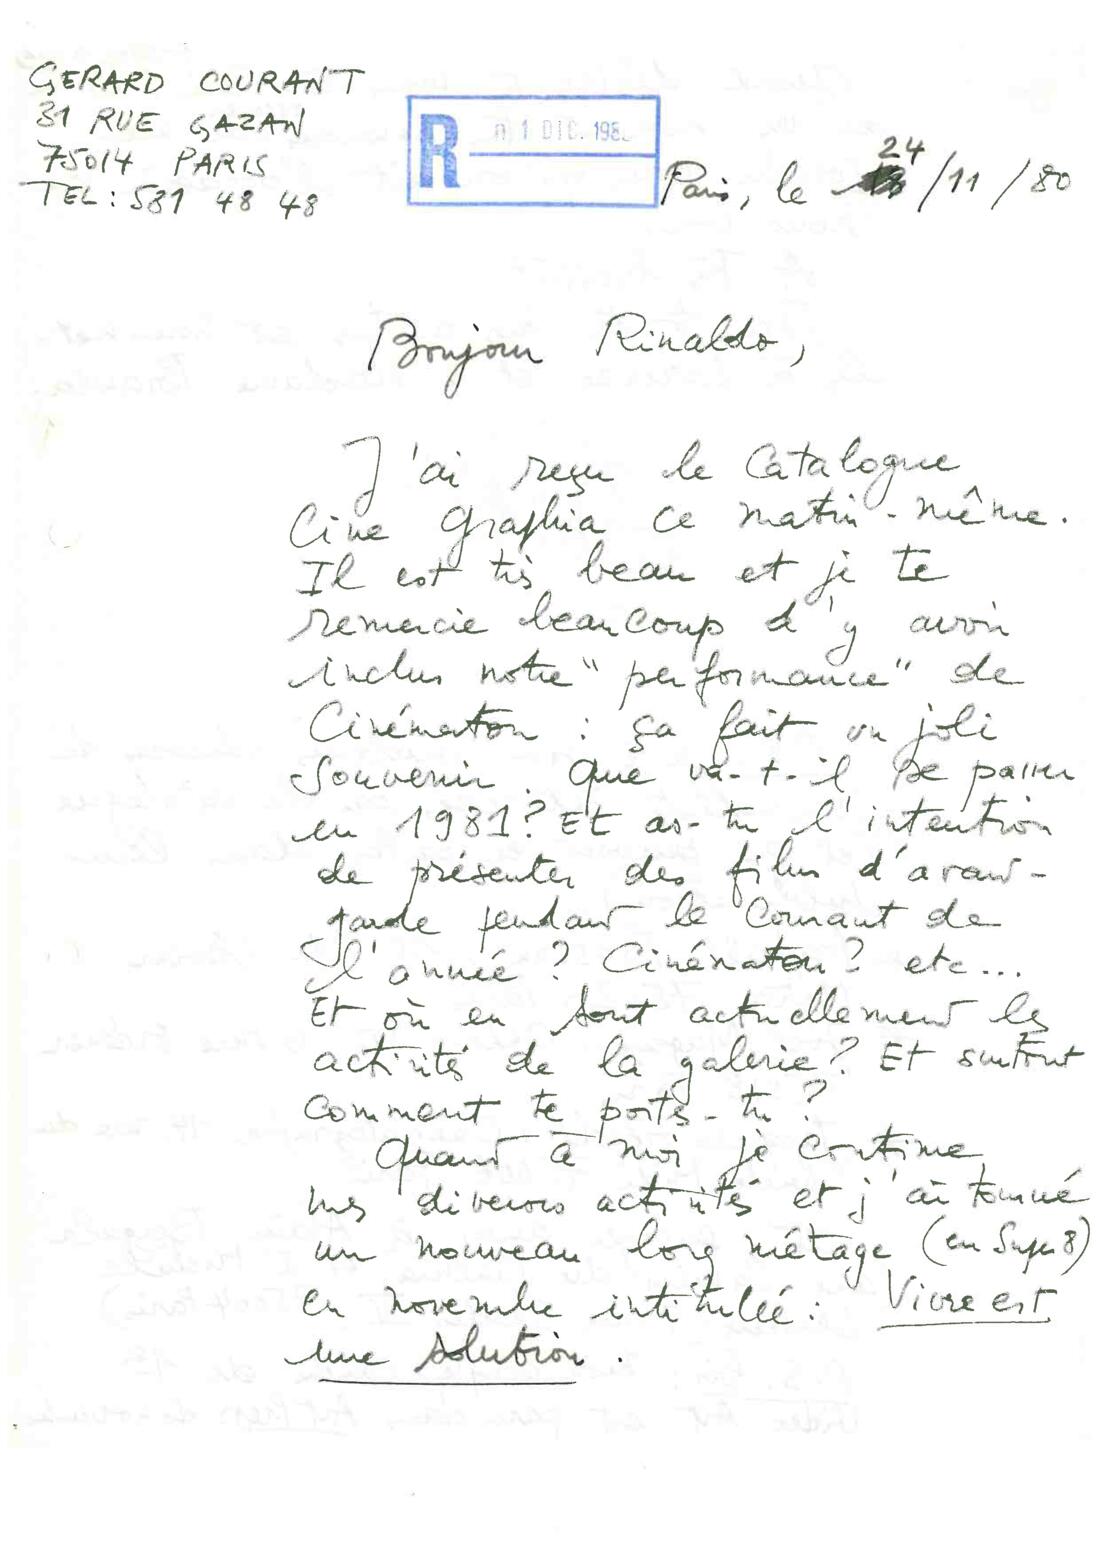 GERARD COURANT
31 RUE GAZAN
75014 PARIS
TEL : 581 48 48
R
01 DIC. 198
Paris, le 24/11/80
Bonjour Rinaldo,
J'ai reçu le Catalogue
Cine graphia ce matin-même.
Il est très beau et je te
remercie beaucoup d'y avoir
inclus notre "performance" de
Cinématon : ça fait un joli
souvenir. Que va-t-il se passer
en 1981? Et as-tu l'intention
de présenter des films d'avant-
garde pendant le courant de
l'année? Cinématon? etc...
Et où en sont actuellement les
activités de la galerie? Et surtout
comment te portes-tu?
Quant à moi je continue
mes diverses activités et j'ai tourné
un nouveau long métrage (en Super 8)
en novembre intitulée : Vivre est
une solution.